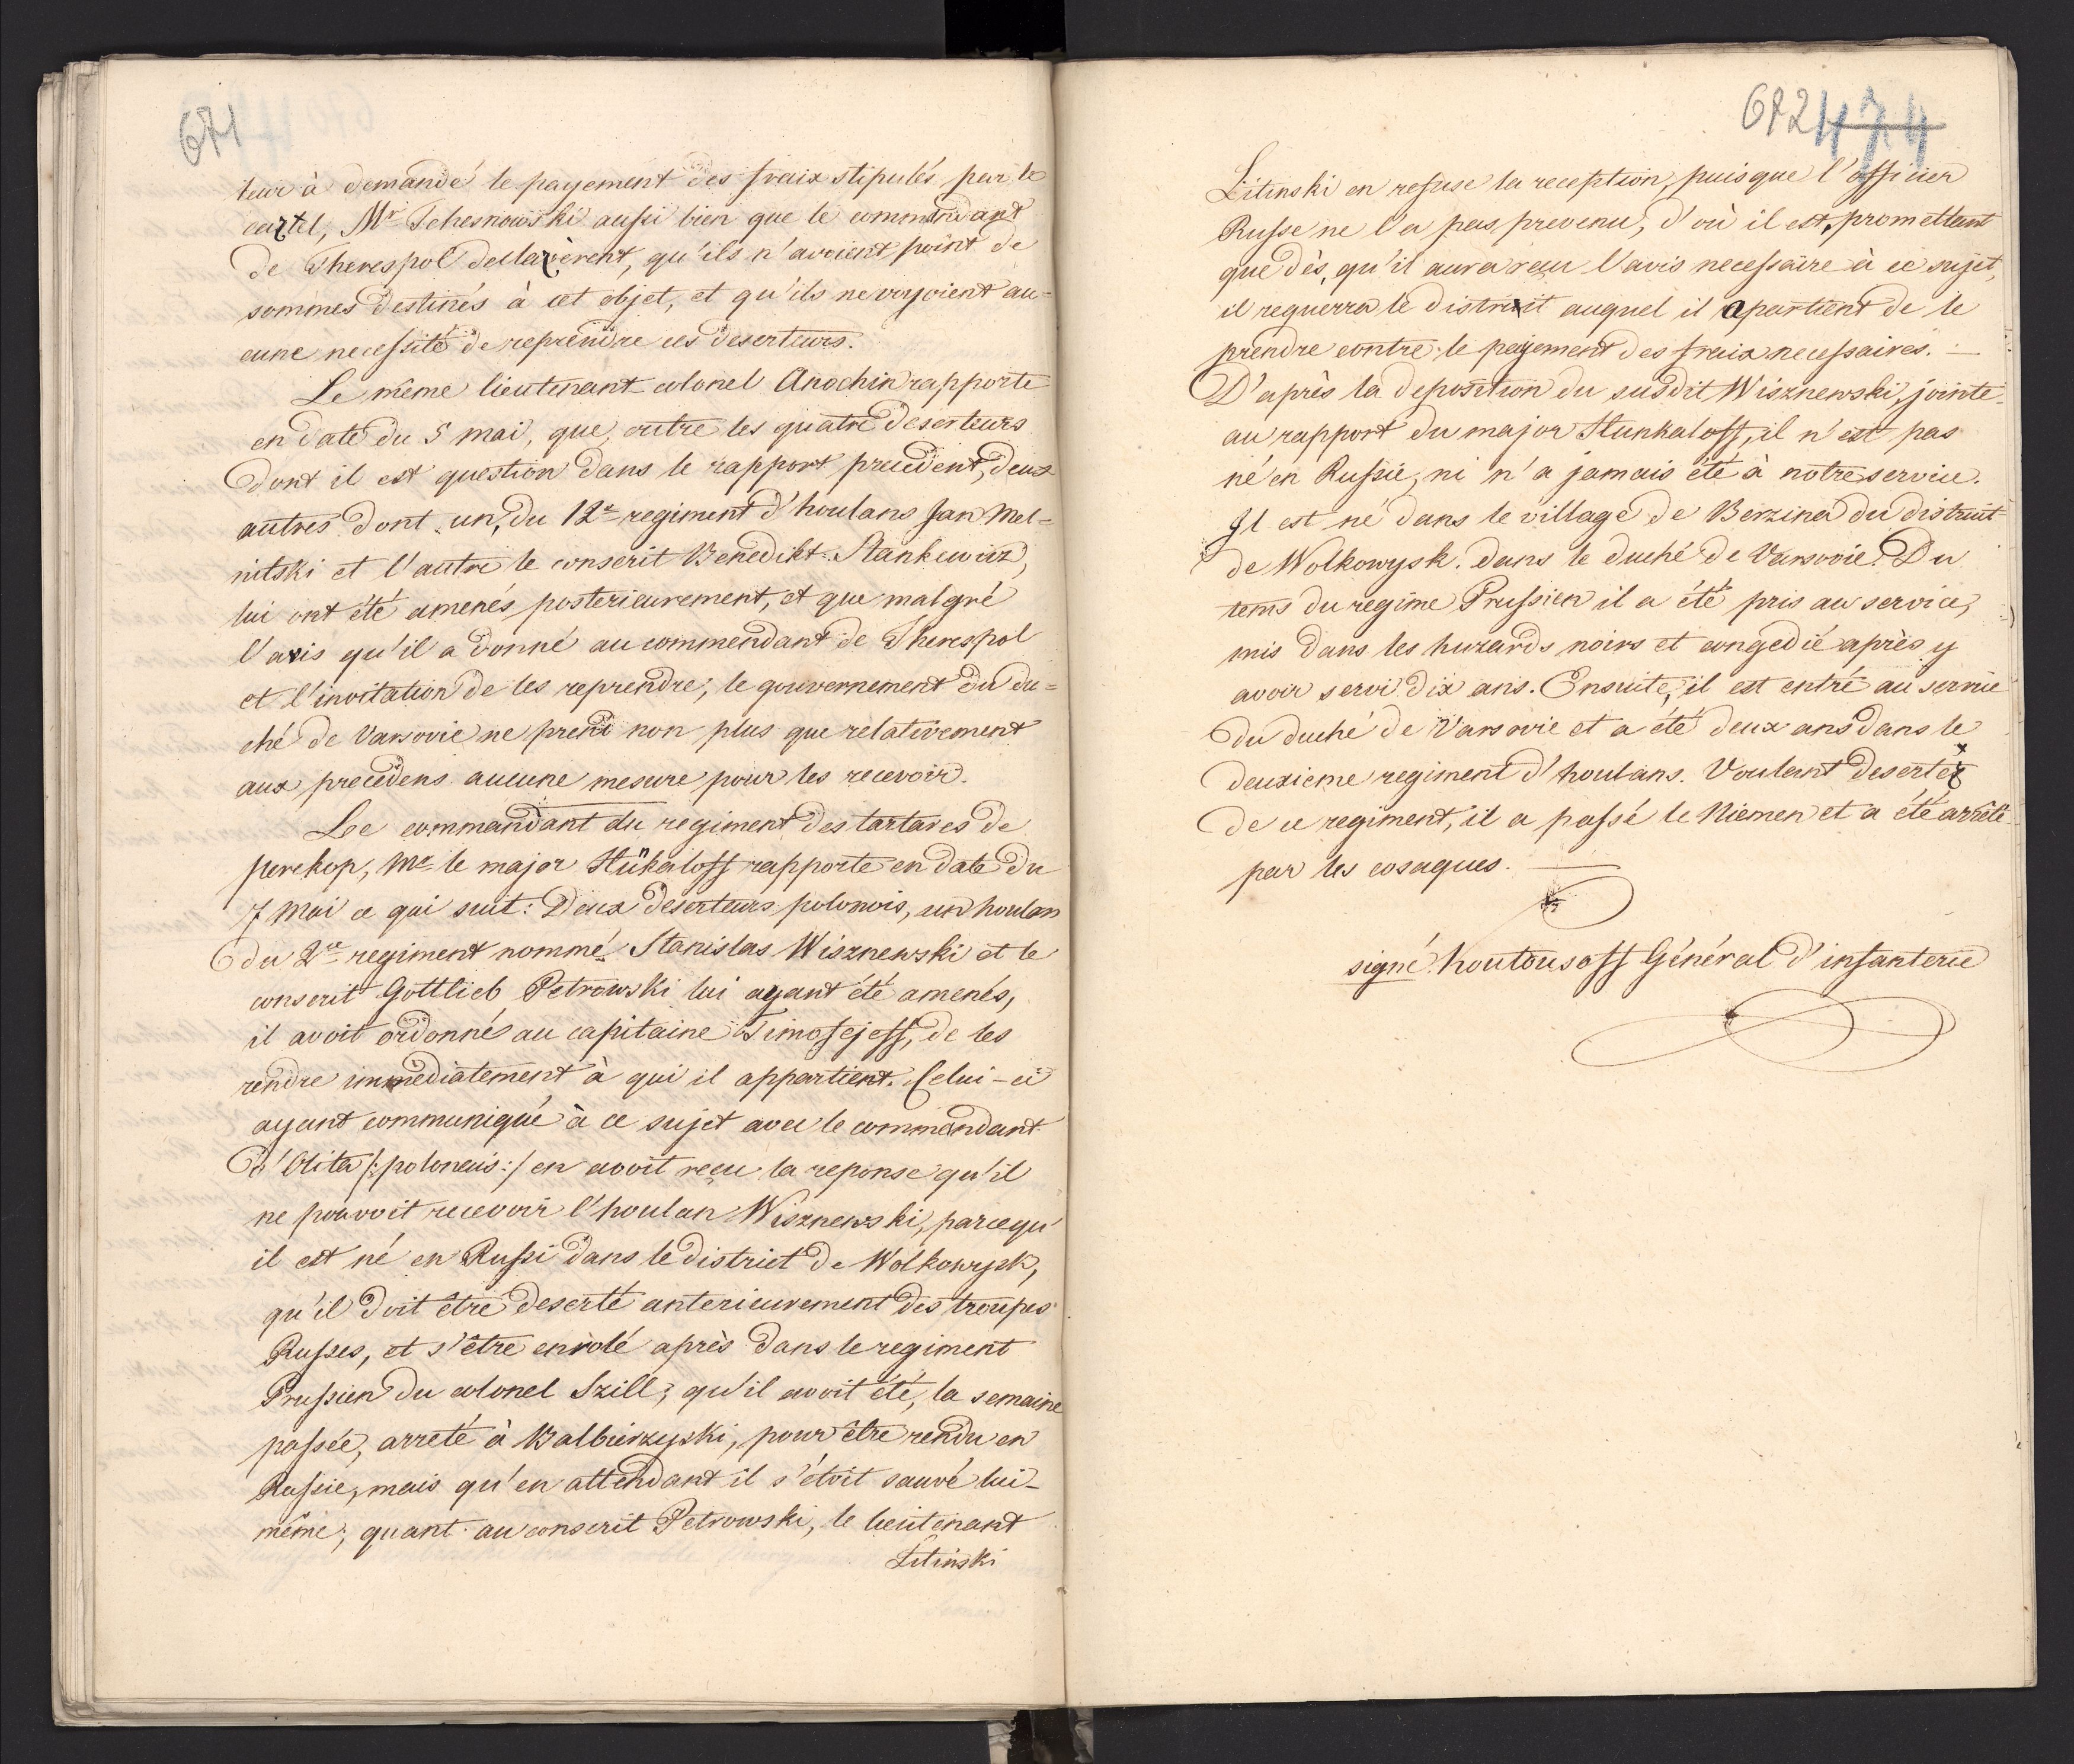 671
teur à demandé le payement des fraix stipulés par le
cartel, Mr Tchesnowski aussi bien que le commendant
de Therespol declarèrent, qu'ils n'avoient point de
sommes destinés à cet objet, et qu'ils ne voyoient au=
cune necessité de reprendre ces deserteurs.
Le même lieutenant colonel Anochin rapporte
en date du 5 mai, que, outre les quatre deserteurs
dont il est question dans le rapport precedent, deux
autres dont un, du 12e regiment d'houlans Jan Mel=
nitski et l'autre le conscrit Benedikt Stankewicz,
lui ont été amenés posterieurement, et que malgré
l'avis qu'il a donné au commendant de Therespol
et l'invitation de les reprendre, le gouvernement du du=
ché de Varsovie ne prend non plus que relativement
aux precedens aucune mesure pour les recevoir.
Le commandant du regiment des tartares de
perekop, Mr le major Stükaloff rapporte en date du
7 Mai ce qui suit: Deux deserteurs polonois, un houlan
du 2me regiment nommé Stanislas Wisznewski et le
conscrit Gottlieb Petrowski lui ayant été amenés,
il avoit ordonné au capitaine Timofejeff, de les
rendre immediatement à qui il appartient. Celui-ci
ayant communiqué à ce sujet avec le commendant
d'Olita /: polonais :/ en avoit reçu la reponse qu'il
ne pouvoit recevoir l'houlan Wisznewski, parcequ'
il est né en Russi dans le district de Wolkowysk,
qu'il doit être deserté anterieurement des troupes
Russes, et s'être enrolé après dans le regiment
Prussien du colonel Szill; qu'il avoit été, la semaine
passée, arreté à Balbierzyski, pour être rendu en
Russie, mais qu'en attendant il s'étoit sauvé lui-
même; quant au conscrit Petrowski, le lieutenant
Litinski
682 474
Litinski en refuse la reception, puisque l'officier
Russe ne l'a pas prevenu, d'où il est, promettant
que dès, qu'il aura reçu l'avis necessaire à ce sujet,
il requerra le district auquel il apartient de le
prendre contre le payement des fraix necessaires.
D'après la deposition du susdit Wisznewski, jointe
au rapport du major Stunkaloff, il n'est pas
né en Russie, ni n'a jamais été à notre service.
Il est né dans le village de Berzina du distruit
de Wolkowysk dans le duché de Varsovie. Du
tems du regime Prussien il a été pris au service,
mis dans les huzards noirs et congedié après y
avoir servi dix ans. Ensuite, il est entré au service
du duché de Varsovie et a été deux ans dans le
deuxieme regiment d'houlans. Voulant deserter
de ce regiment, il a passé le Niemen et a été arrêté
par les cosaques.
signé Koutousoff Général d'infanterie